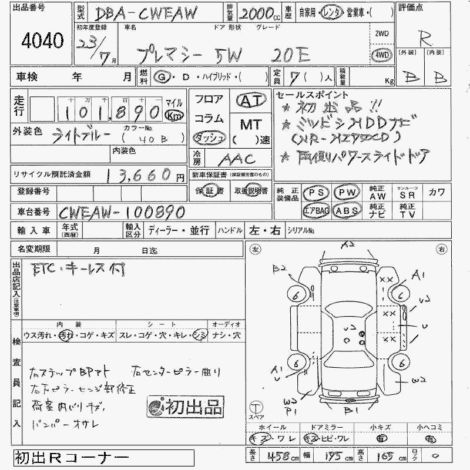 出品番号 型式 DBA-CWEAW 排気量 2000cc 車歴 自家用・レンタ・営業車・( ) 評価点
4040 初年度登録 23/7月 ドア 形状 グレード
プレマシー 5W 20E 2WD 4WD R
車検 年 月 燃料 G・D・ハイブリッド・( ) 定員 7( )人 積載量 Kg (外装) B (内装) B
走行 十万 万 千 百 十 一 101,890 マイル Km
フロア コラム ダッシュ AT MT ( )速
セールスポイント
★ 初出品!!
★ ミツビシHDDナビ
(NR-HZ750CD)
★ 両側パワースライドドア
外装色 ライトブルー カラーNo. (40B)
内装色
冷房 AAC
リサイクル預託済金額 13,660円
新車保証書 保証書 取扱説明書
登録番号
純正装備品 PS PW 純正AW サンルーフ SR カワ
エアBAG ABS 純正ナビ 純正TV
車台番号 CWEAW-100890
輸入車 年式(西暦) 輸入区分 ディーラー・並行 ハンドル 左・右 シリアルNo.
名変期限 月 日迄
出品店記入(注意事項)
ETC・キーレス付
検査員記入
内装 シート オーディオ
ウス汚れ・汚れ・コゲ・キズ スレ・コゲ・穴・キレ・シミ ナシ・穴
右ステップBPマト 右センターピラー曲り
荷室内ハリキズ
バンパーオサレ
初出品
初出Rコーナー
左 右
A2 B2 A1 U1 X X
6 6 6 6
W2 P1 B1 W2
スペア
ホイール ドアミラー 小キズ 小ヘコミ
キズ・ワレ キズ・ヒビ・ワレ
長さ 458cm 幅 175cm 高さ 165cm ロック